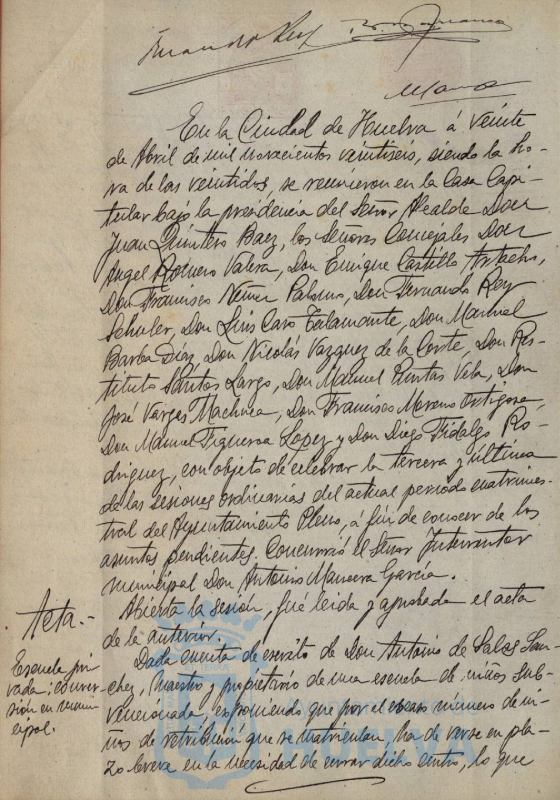 Fernando Rey
En la Ciudad de Huelva á veinte
de Abril de mil novecientos veintiseis, siendo la ho-
ra de las veintidos, se reunieron en la Casa Capi-
tular bajo la presidencia del Señor Alcalde Don
Juan Quintero Baez, los Señores Concejales Don
Angel Romero Valera, Don Enrique Castillo Artacho,
Don Francisco Nuñez Palomo, Don Fernando Rey
Schuler, Don Luis Caro Talamante, Don Manuel
Barba Díaz, Don Nicolás Vazquez de la Corte, Don Res-
tituto Santos Largo, Don Manuel Puntas Vela, Don
José Vargas Machuca, Don Francisco Moreno Ortigosa,
Don Manuel Figueroa Lopez y Don Diego Fidalgo Ro-
driguez, con objeto de celebrar la tercera y última
de las sesiones ordinarias del actual periodo cuatrimes-
tral del Ayuntamiento Pleno, á fin de conocer de los
asuntos pendientes. Concurrió el Señor Interventor
municipal Don Antonio Mancera García.
Acta.-
Abierta la sesión, fué leida y aprobada el acta
de la anterior.
Escuela pri-
vada: conver-
sión en muni-
cipal.
Dada cuenta de escrito de Don Antonio de Salas San-
chez, Maestro y propietario de una escuela de niños sub-
vencionada, exponiendo que por el escaso número de ni-
ños de retribución que se matriculan ha de verse en pla-
zo breve en la necesidad de cerrar dicho centro, lo que
HUELVA